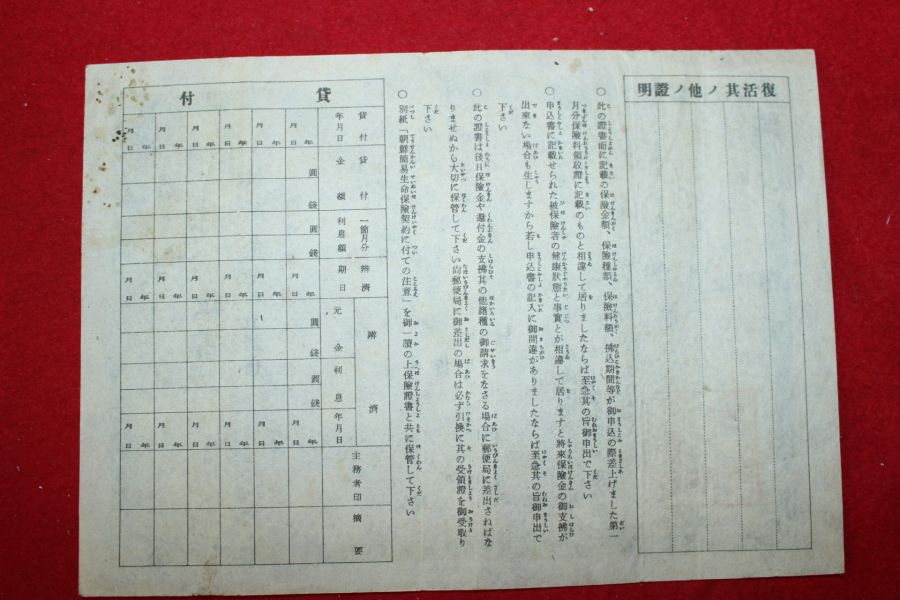 復活其ノ他ノ證明
○ 此の證書面に記載の保險金額、保險種類、保險料額、拂込期間等が御申込の際差上げました第一
月分保險料領收證に記載のものと相違して居りましたならば至急其の旨御申出で下さい
○ 申込書に記載せられた被保險者の健康狀態と事實とが相違して居りますと將來保險金の御支拂が
出來ない場合も生じますから若し申込書の記入に御間違がありましたならば至急其の旨御申出で
下さい
○ 此の證書は後日保險金や還付金の支拂其の他諸種の御請求をなさる場合に郵便局に差出さねばな
りませぬから大切に保管して下さい尙郵便局に御差出の場合は必ず引換に其の受領證を御受取り
下さい
○ 別紙「朝鮮簡易生命保險契約に付ての注意」を御一讀の上保險證書と共に保管して下さい
貸付
貸付年月日
年月日
年月日
年月日
年月日
年月日
年月日
貸付金額
圓
錢
一箇月分利息額
圓
錢
辨濟期日
年月日
年月日
年月日
年月日
年月日
年月日
辨濟
元金
圓
錢
利息
圓
錢
年月日
年月日
年月日
年月日
年月日
年月日
年月日
主務者印
摘要